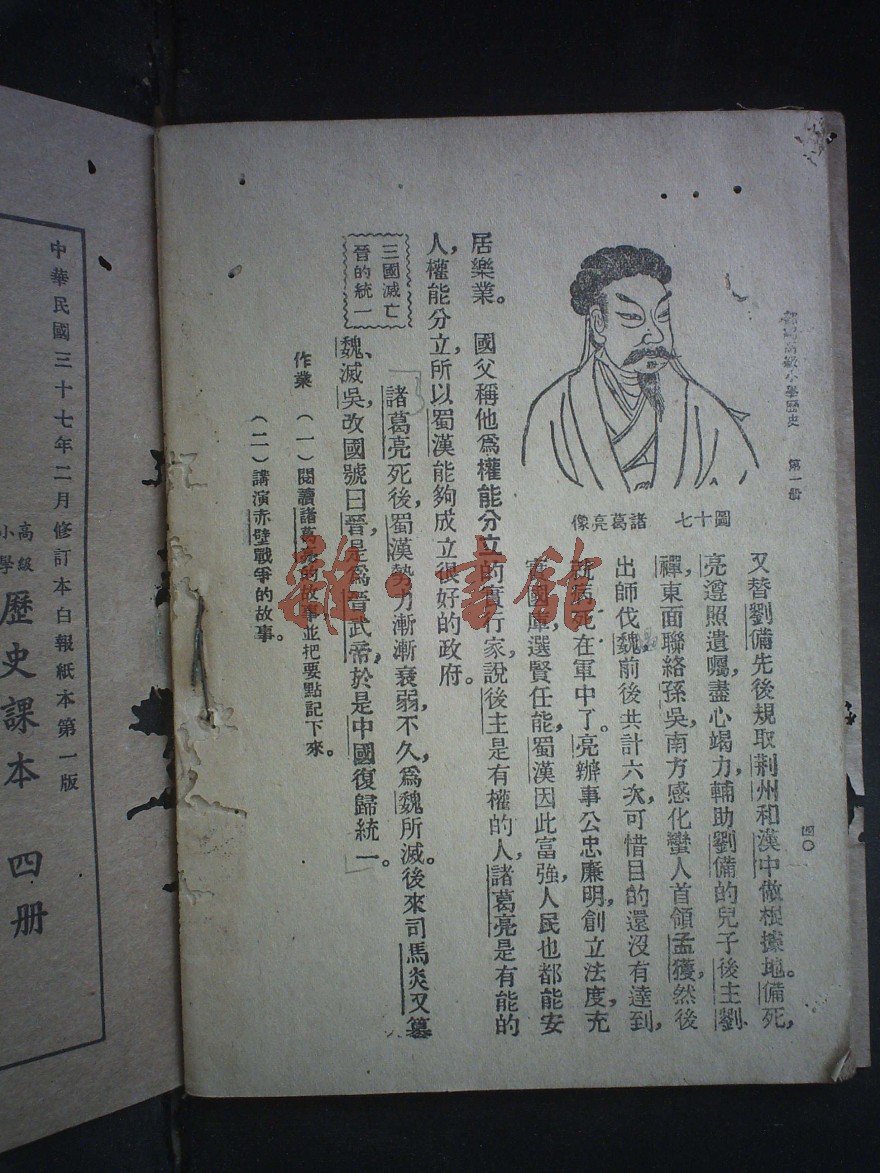 高級小學歷史 第一册
四〇
圖十七 諸葛亮像
又替劉備先後規取荆州和漢中做根據地。備死,
亮遵照遺囑,盡心竭力,輔助劉備的兒子後主劉
禪,東面聯絡孫吳,南方感化蠻人首領孟獲,然後
出師伐魏,前後共計六次,可惜目的還沒有達到,
就病死在軍中了。亮辦事公忠廉明,創立法度,充
實國庫,選賢任能,蜀漢因此富強,人民也都能安
居樂業。 國父稱他爲權能分立的實行家,說後主是有權的人,諸葛亮是有能的
人,權能分立,所以蜀漢能夠成立很好的政府。
三國滅亡
晉的統一
諸葛亮死後,蜀漢勢力漸漸衰弱,不久,爲魏所滅。後來司馬炎又篡
魏、滅吳,改國號曰晉,是爲晉武帝,於是中國復歸統一。
作業 (一)閱讀諸葛亮的故事並把要點記下來。
(二)講演赤壁戰爭的故事。
中華民國三十七年二月修訂本白報紙本第一版
高級
小學
歷史課本 四册